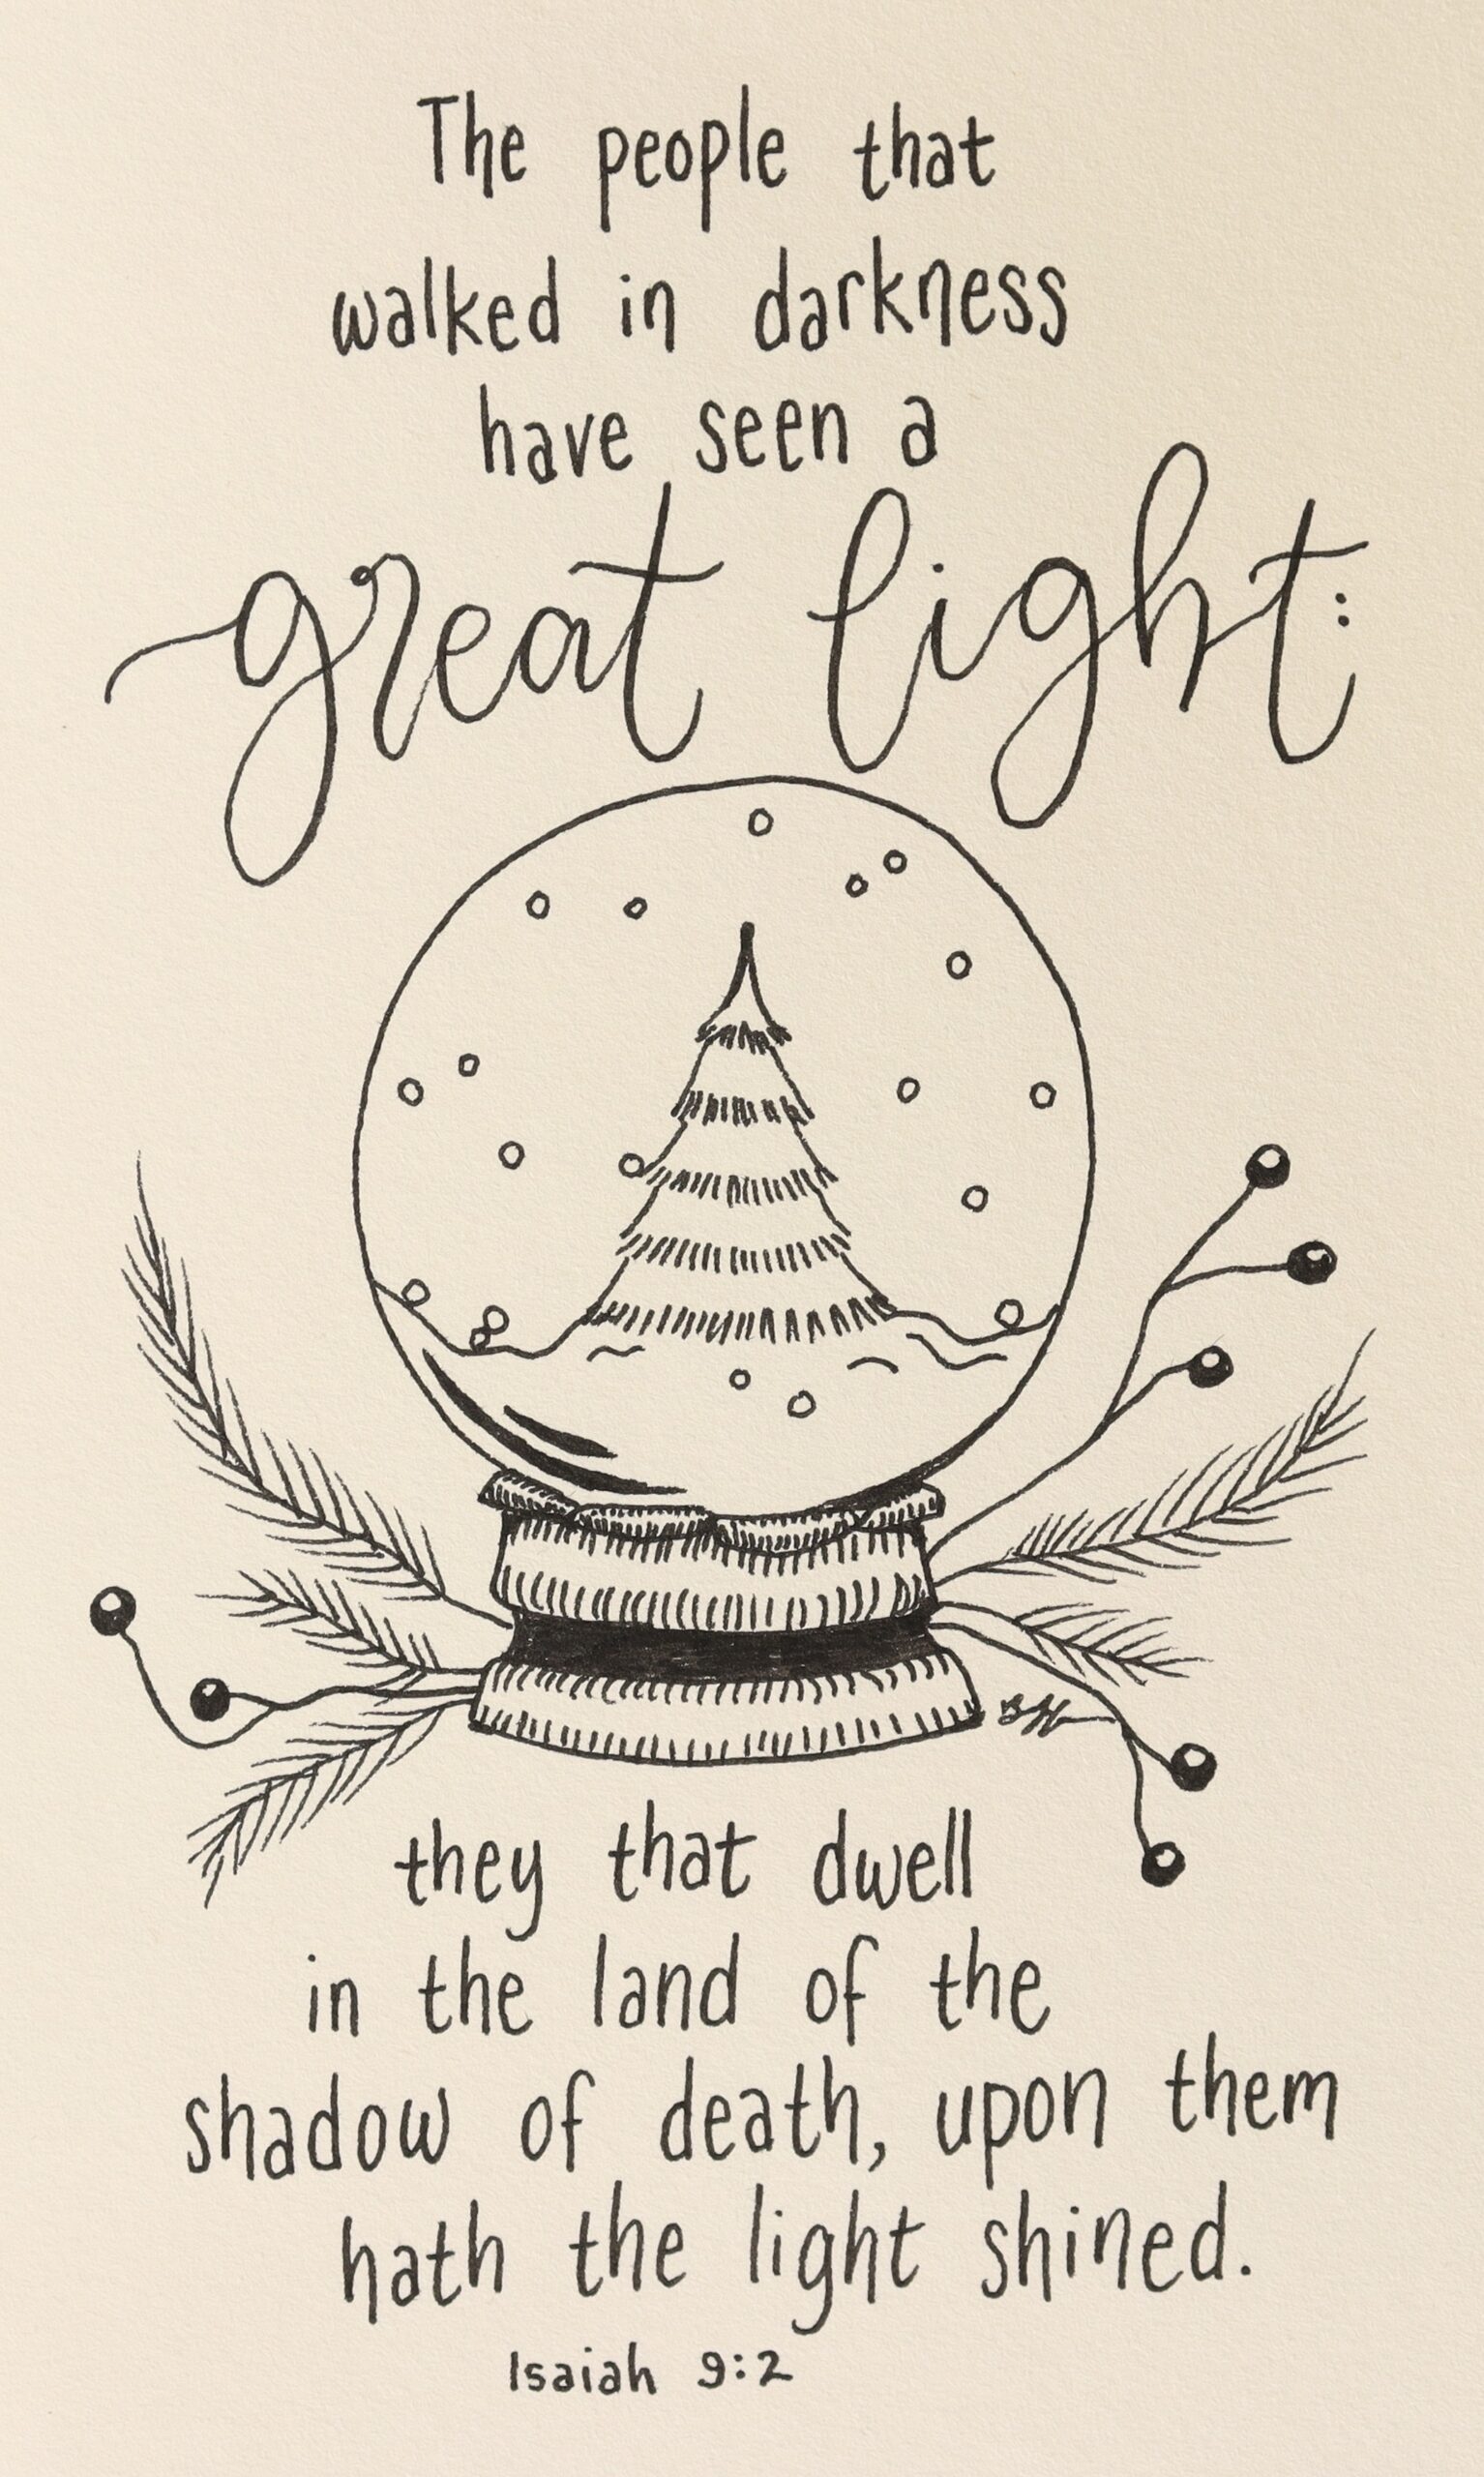 The people that
walked in darkness
have seen a
great light:
they that dwell
in the land of the
shadow of death, upon them
hath the light shined.
Isaiah 9:2